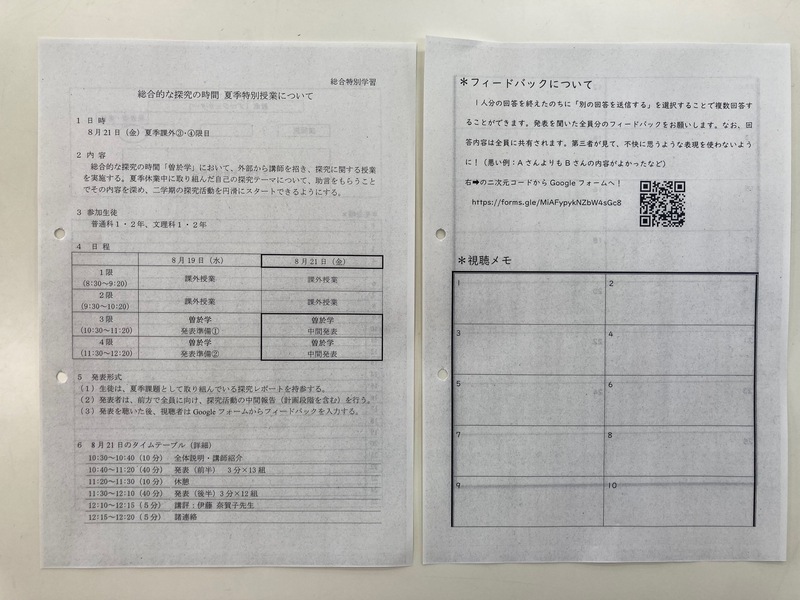 総合特別学習
総合的な探究の時間 夏季特別授業について
1 日 時
8月21日（金）夏季課外③・④限目
2 内 容
総合的な探究の時間「曽於学」において、外部から講師を招き、探究に関する授業
を実施する。夏季休業中に取り組んだ自己の探究テーマについて、助言をもらうこと
でその内容を深め、二学期の探究活動を円滑にスタートできるようにする。
3 参加生徒
普通科1・2年、文理科1・2年
4 日 程
8月19日（水） 8月21日（金）
1限 (8:30～9:20) 課外授業 課外授業
2限 (9:30～10:20) 課外授業 課外授業
3限 (10:30～11:20) 曽於学 発表準備① 曽於学 中間発表
4限 (11:30～12:20) 曽於学 発表準備② 曽於学 中間発表
5 発表形式
（1）生徒は、夏季課題として取り組んでいる探究レポートを持参する。
（2）発表者は、前方で全員に向け、探究活動の中間報告（計画段階を含む）を行う。
（3）発表を聴いた後、視聴者はGoogleフォームからフィードバックを入力する。
6 8月21日のタイムテーブル（詳細）
10:30～10:40（10分） 全体説明・講師紹介
10:40～11:20（40分） 発表（前半） 3分×13組
11:20～11:30（10分） 休憩
11:30～12:10（40分） 発表（後半）3分×12組
12:10～12:15（5分） 講評：伊藤 奈賀子先生
12:15～12:20（5分） 諸連絡
＊フィードバックについて
1人分の回答を終えたのちに「別の回答を送信する」を選択することで複数回答す
ることができます。発表を聞いた全員分のフィードバックをお願いします。なお、回
答内容は全員に共有されます。第三者が見て、不快に思うような表現を使わないよう
に！（悪い例：AさんよりもBさんの内容がよかったなど）
右➡の二次元コードからGoogleフォームへ！
https://forms.gle/MiAFypykNZbW4sGc8
＊視聴メモ
1 2
3 4
5 6
7 8
9 10